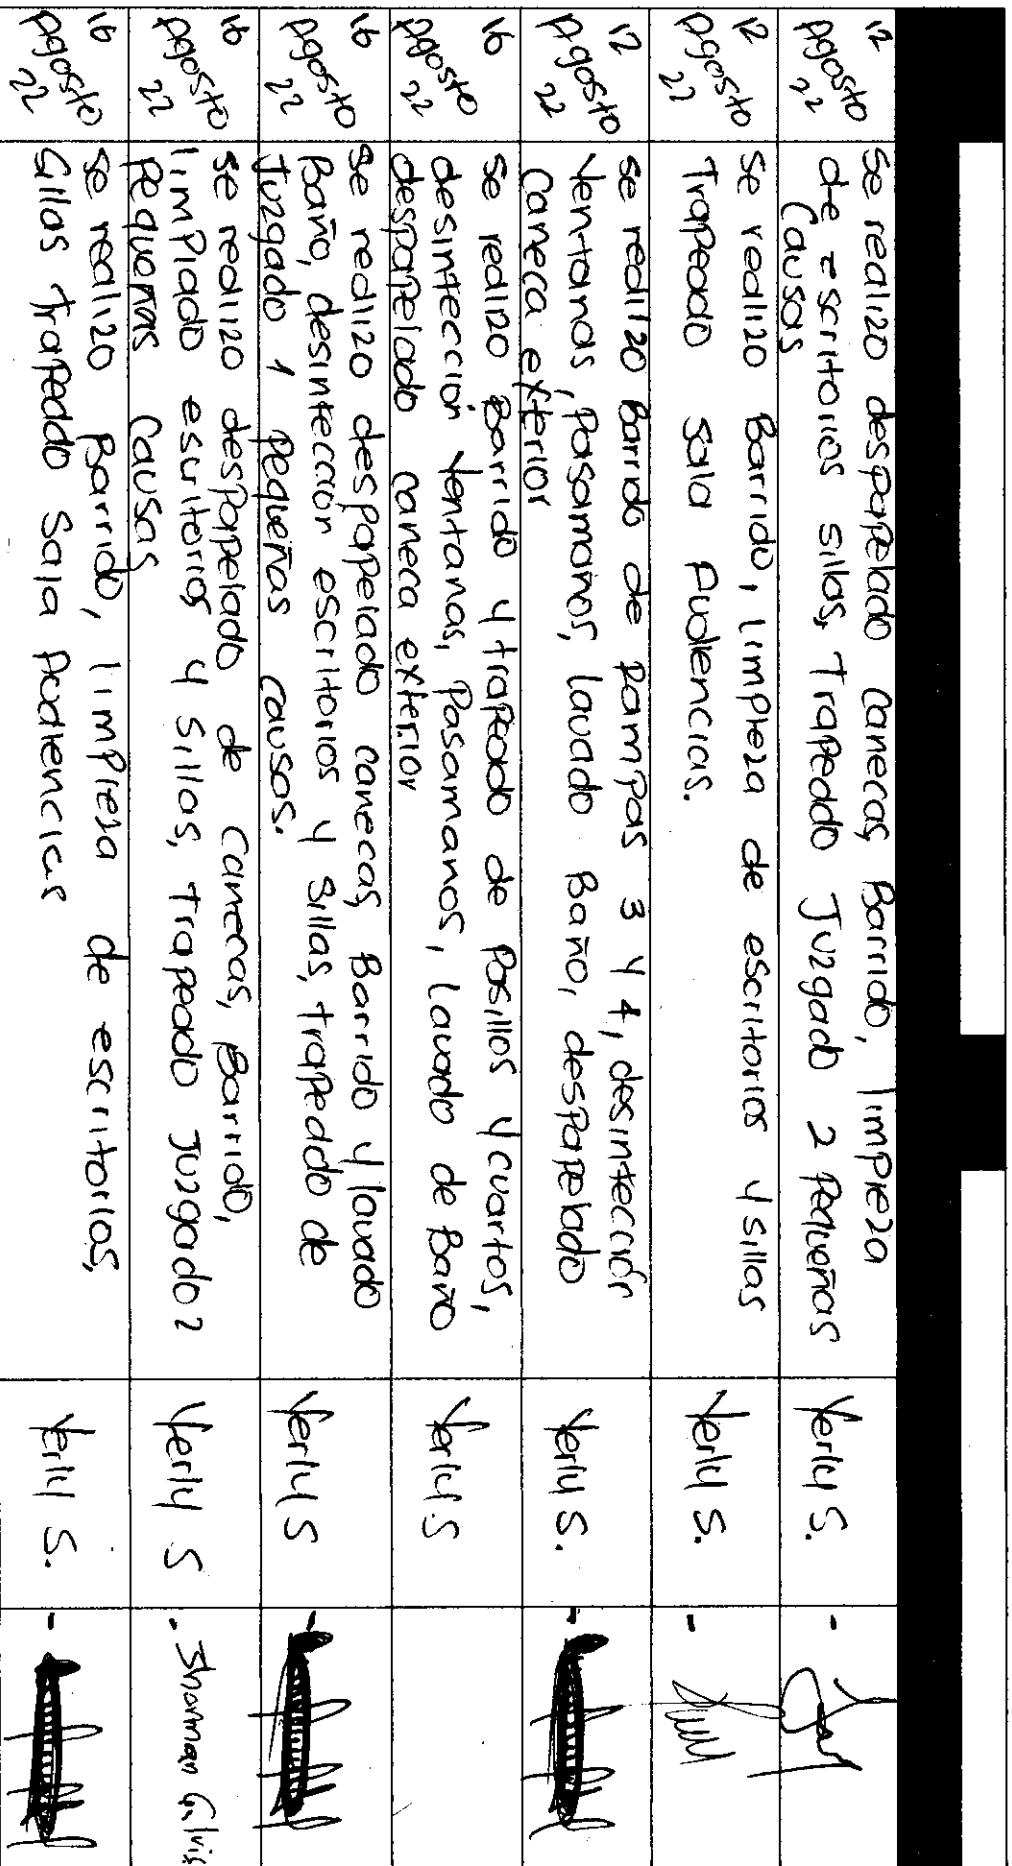 12 Agosto 22
se realizo despapelado canecas, Barrido, limpieza
de escritorios sillas, Trapeado Juzgado 2 Pequeñas
Causas
Yerly S.
12 Agosto 22
se realizo Barrido, limpieza de escritorios y sillas
Trapeado Sala Audiencias.
Yerly S.
12 Agosto 22
se realizo Barrido de Pampas 3 y 4, desinfección
Ventanas, Pasamanos, lavado Baño, despapelado
Caneca exterior
Yerly S.
16 Agosto 22
se realizo Barrido y trapeado de Pasillos y cuartos,
desinfección Ventanas, Pasamanos, lavado de Baño
despapelado caneca exterior
Yerly S
16 Agosto 22
se realizo despapelado canecas, Barrido y lavado
Baño, desinfección escritorios y sillas, trapeado de
Juzgado 1 Pequeñas causas.
Yerly S
16 Agosto 22
se realizo despapelado de canecas, Barrido,
limpiado escritorios y sillas, trapeado Juzgado 2
Pequeñas Causas
Yerly S
16 Agosto 22
se realizo Barrido, limpiesa de escritorios,
Sillas trapeado Sala Audiencias
Yerly S.